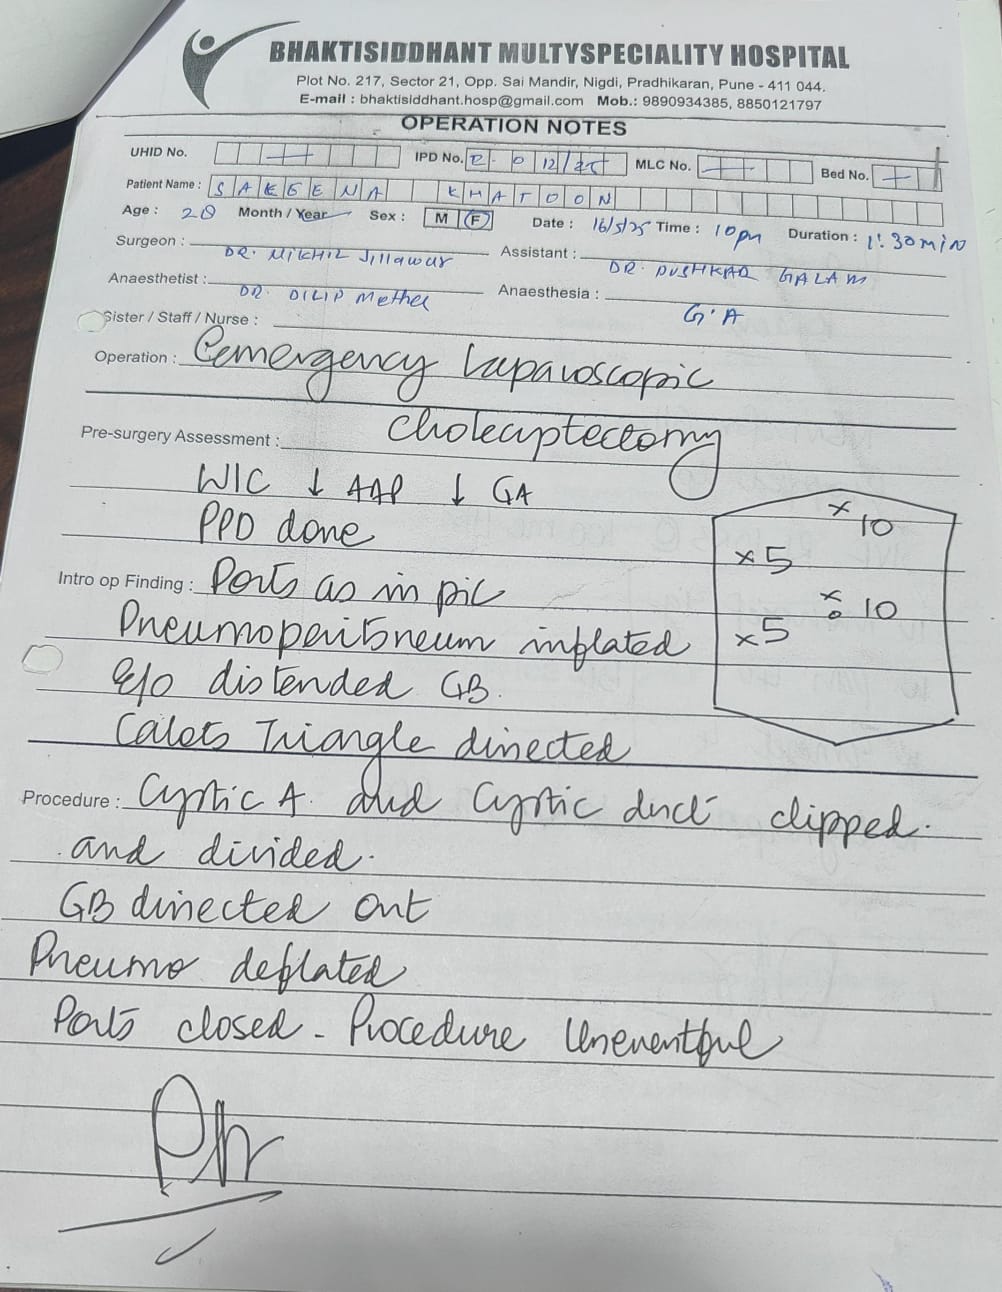 BHAKTISIDDHANT MULTYSPECIALITY HOSPITAL
Plot No. 217, Sector 21, Opp. Sai Mandir, Nigdi, Pradhikaran, Pune - 411 044.
E-mail : bhaktisiddhant.hosp@gmail.com Mob.: 9890934385, 8850121797
OPERATION NOTES
UHID No. IPD No. 012/25 MLC No. Bed No.
Patient Name : SAKEENA KHATOON
Age : 28 Month / Year Sex : M F Date : 16/5/25 Time : 10pm Duration : 1:30min
Surgeon : DR. NIKHIL Jillawar Assistant : DR. PUSHKAR GALAM
Anaesthetist : DR. DILIP Methe Anaesthesia : G.A
Sister / Staff / Nurse :
Operation : Emergency Laparoscopic
Cholecyptectomy
Pre-surgery Assessment :
WIC ↓ AAP ↓ GA
PPD done
x 10
x 5
Intro op Finding : Ports as in pic
x 10
x 5
Pneumoperitoneum inflated
e/o distended GB.
Calots Triangle dinected
Procedure : Cystic A. and Cystic duct clipped.
and divided.
GB dinected out
Pneumo deflated
Ports closed - Procedure Uneventful